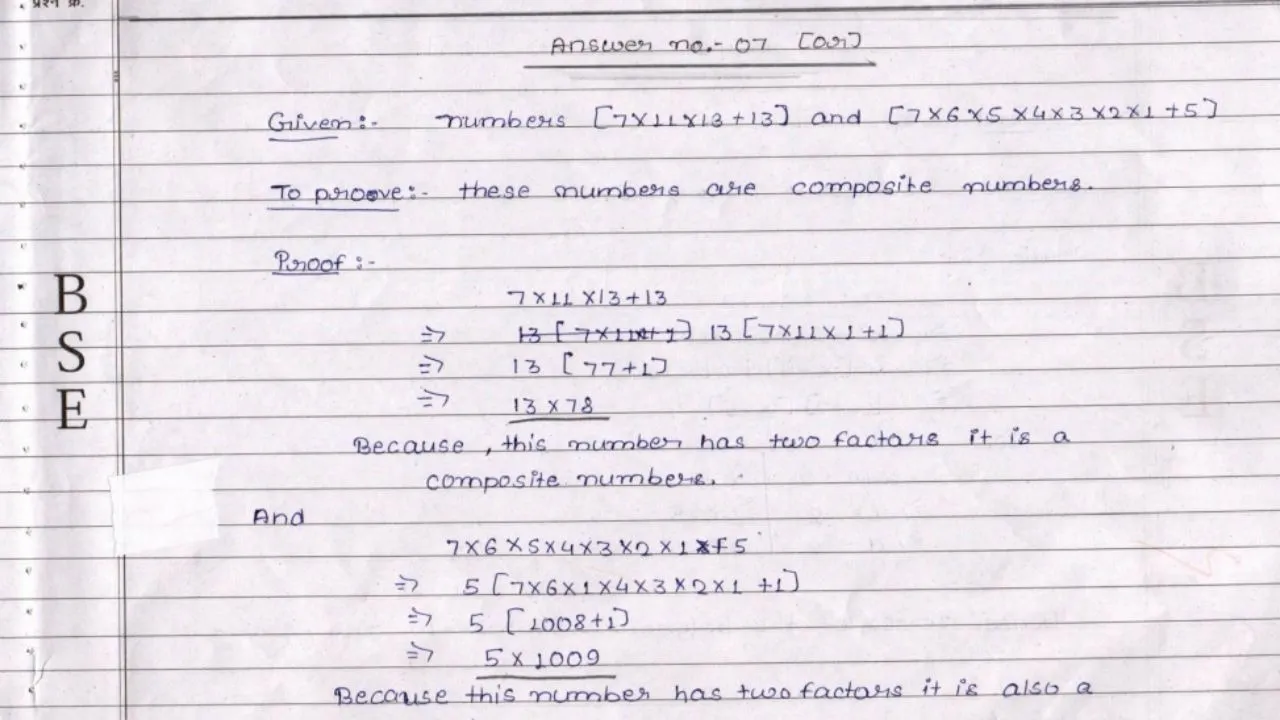 प्रश्न क्र.
Answer no.- 07 [or]
Given:- numbers [7×11×13+13] and [7×6×5×4×3×2×1+5]
To proove:- these numbers are composite numbers.
Proof :-
7×11×13+13
⇒ 13[7×11×1+1]
⇒ 13 [77+1]
⇒ 13×78
Because, this number has two factors it is a
composite numbers.
And
7×6×5×4×3×2×1+5
⇒ 5[7×6×1×4×3×2×1 +1]
⇒ 5 [1008+1]
⇒ 5×1009
Because this number has two factors it is also a
B
S
E